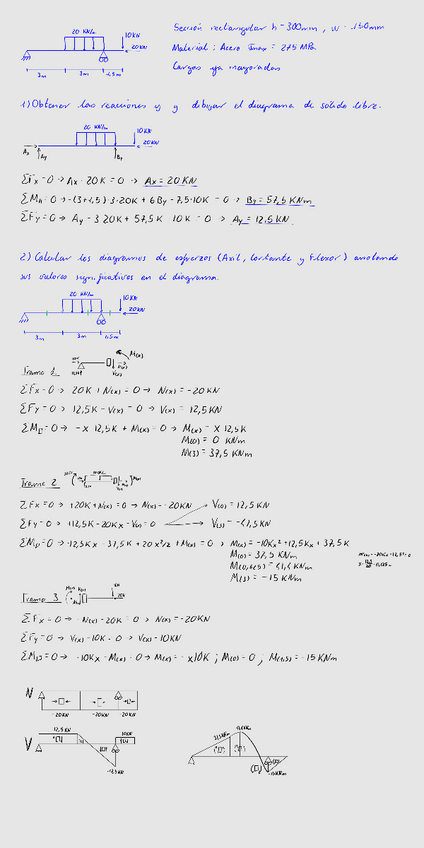 Sección rectangular h = 300mm, w = 150mm
Material: Acero σmax = 275 MPa
Cargas ya mayoradas
20 KN/m
10 KN
20KN
3m 3m 1,5m
1) Obtener las reacciones y dibujar el diagrama de sólido libre.
20 KN/m
10 KN
20KN
Ax
Ay
By
ΣFx=0 → Ax - 20K = 0 → Ax = 20 KN
ΣMA=0 → -(3+1,5)·3·20K + 6By - 7,5·10K = 0 → By = 57,5 KNm
ΣFy=0 → Ay - 3·20K + 57,5K - 10K = 0 → Ay = 12,5 KN
2) Calcular los diagramas de esfuerzos (Axil, Cortante y Flexor) anotando
sus valores significativos en el diagrama.
20 KN/m
10 KN
20KN
3m 3m 1,5m
Tramo 1
M(x)
V(x)
ΣFx=0 → 20K + N(x) = 0 → N(x) = -20KN
ΣFy=0 → 12,5K - V(x) = 0 → V(x) = 12,5 KN
ΣM=0 → -x 12,5K + M(x) = 0 → M(x) = x 12,5K
M(0) = 0 KNm
M(3) = 37,5 KNm
Tramo 2
ΣFx=0 → +20K + N(x) = 0 → N(x) = -20KN
V(0) = 12,5 KN
ΣFy=0 → +12,5K - 20Kx - V(x) = 0
V(3) = -47,5KN
ΣM=0 → -12,5Kx - 37,5K + 20x²/2 + M(x) = 0 → M(x) = -10Kx² + 12,5Kx + 37,5K
M(0) = 37,5 KNm
M(0,625) = 41,4 KNm
M(3) = -15 KNm
Tramo 3
ΣFx=0 → -N(x) - 20K = 0 → N(x) = -20KN
ΣFy=0 → V(x) - 10K = 0 → V(x) = 10KN
ΣM=0 → -10Kx - M(x) = 0 → M(x) = -x10K ; M(0) = 0 , M(1,5) = -15 KNm
N
-20KN -20KN -20KN
V
12,5KN
10KN